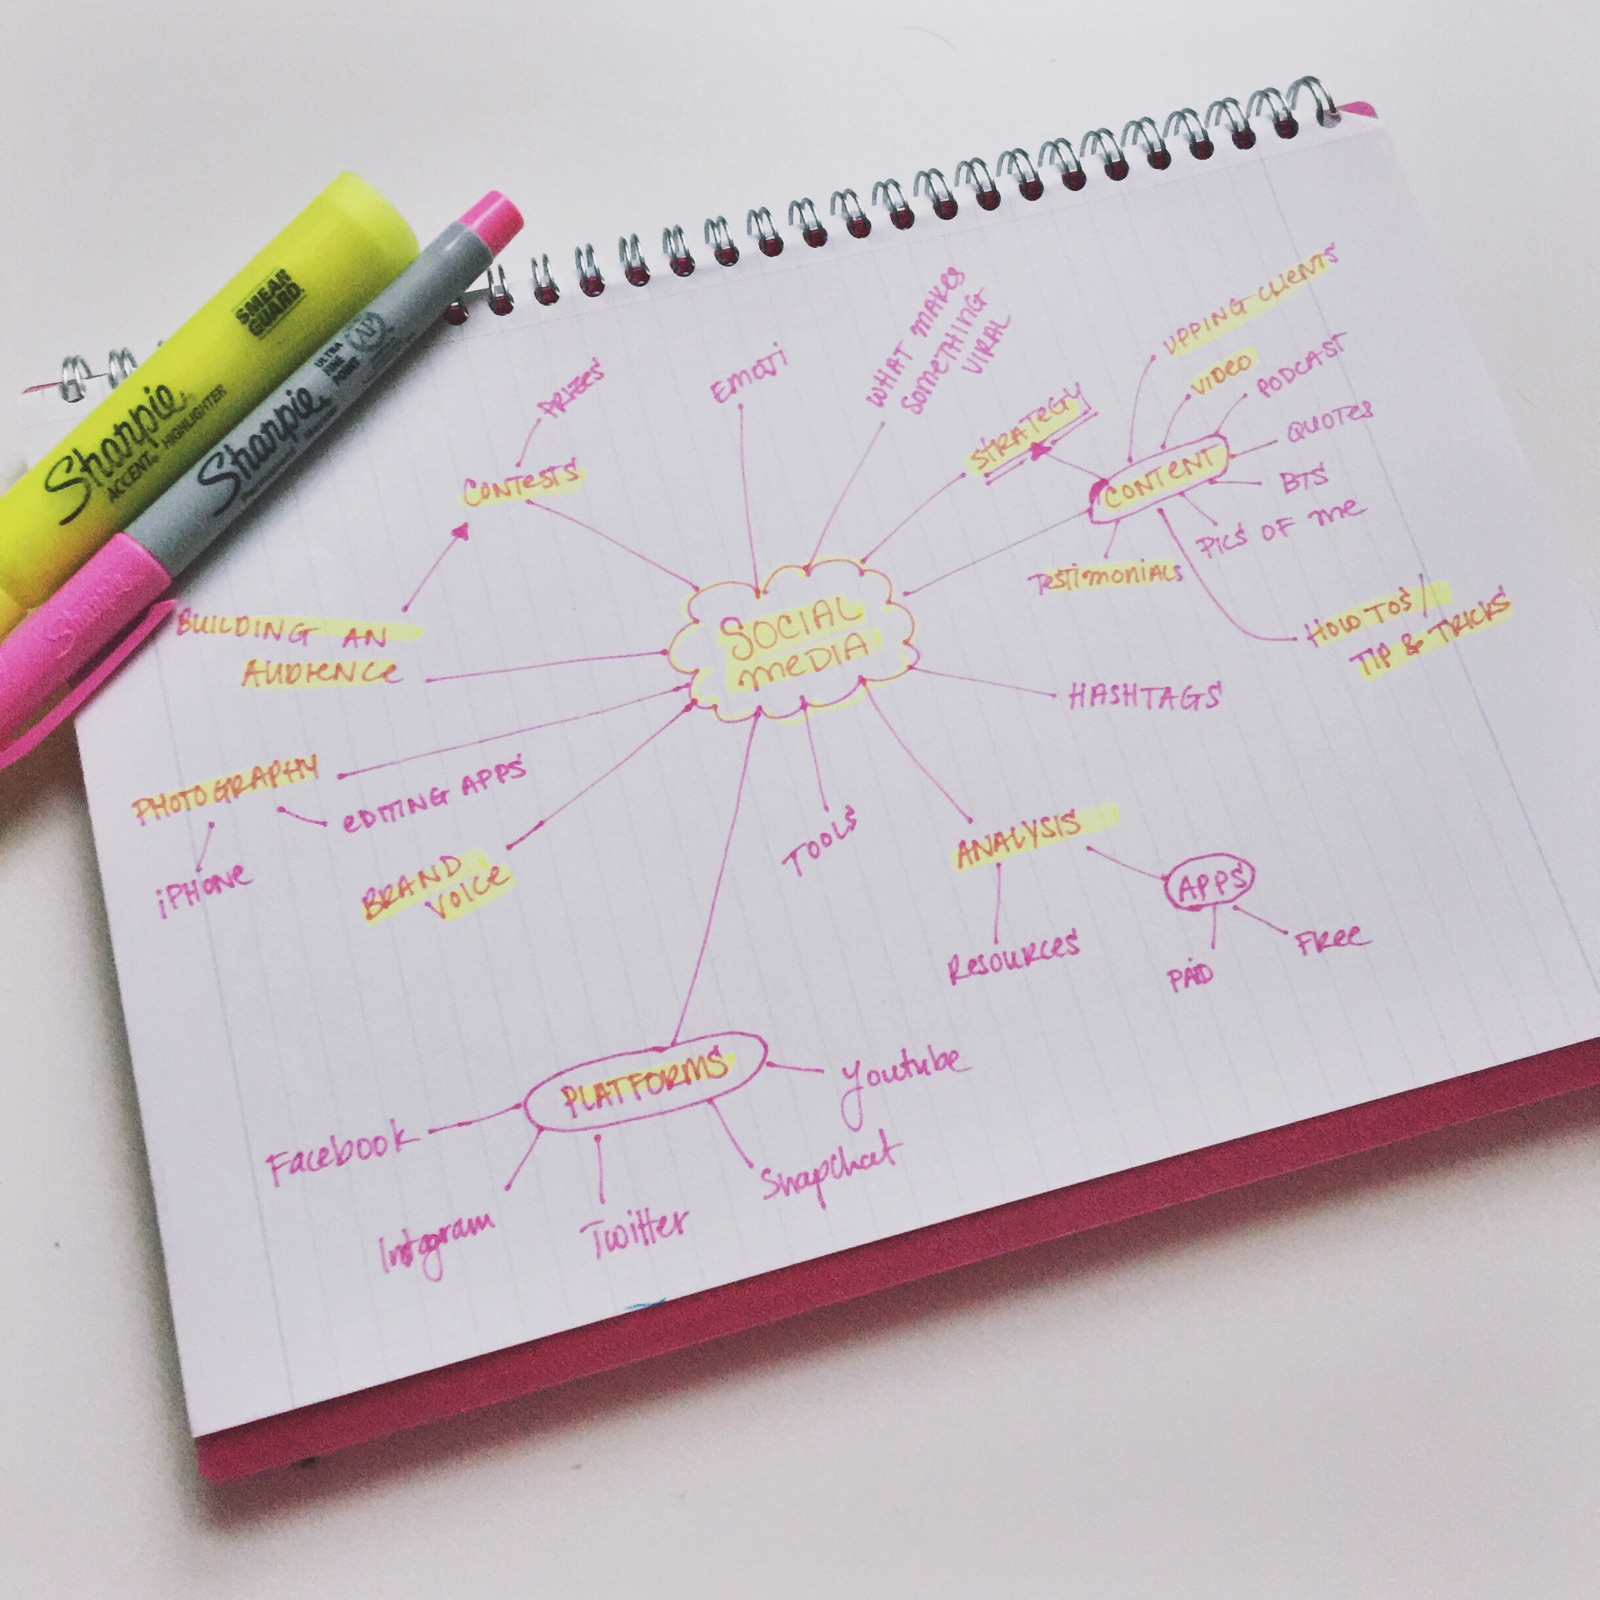 SMEAR
GUARD
Sharpie
ACCENT, HIGHLIGHTER
ULTRA
FINE
POINT
AP
Sharpie
Sharpie
PRIZES
CONTESTS
EMOJI
WHAT MAKES
SOMETHING
VIRAL
STRATEGY
UPPING CLIENTS
VIDEO
PODCAST
QUOTES
CONTENT
BTS
PICS OF ME
TESTIMONIALS
HOW TOS /
TIP & TRICKS
BUILDING AN
AUDIENCE
SOCIAL
MEDIA
HASHTAGS
PHOTOGRAPHY
EDITING APPS
iPHONE
BRAND
VOICE
TOOLS
ANALYSIS
APPS
RESOURCES
PAID
FREE
PLATFORMS
Youtube
Facebook
Snapchat
Instagram
Twitter